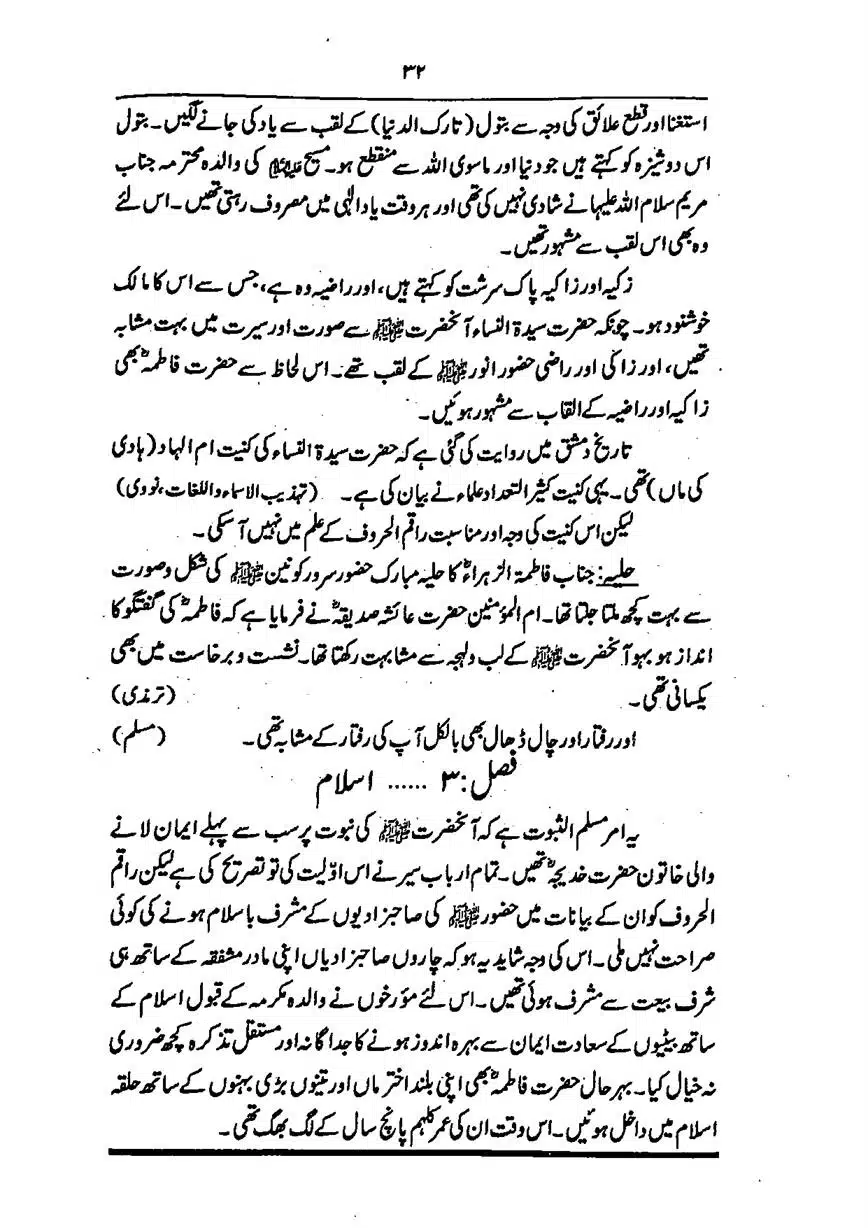 ۳۲
استغنا اور قطع علائق کی وجہ سے بتول (تارک الدنیا) کے لقب سے یاد کی جانے لگیں۔ بتول
اس دوشیزہ کو کہتے ہیں جو دنیا اور ماسوی اللہ سے منقطع ہو۔ مسیح علیہ السلام کی والدہ محترمہ جناب
مریم سلام اللہ علیہا نے شادی نہیں کی تھی اور ہر وقت یاد الٰہی میں مصروف رہتی تھیں۔ اس لئے
وہ بھی اس لقب سے مشہور تھیں۔
زکیہ اور زاکیہ پاک سرشت کو کہتے ہیں، اور راضیہ وہ ہے، جس سے اس کا مالک
خوشنود ہو۔ چونکہ حضرت سیدۃ النساء آنحضرت ﷺ سے صورت اور سیرت میں بہت مشابہ
تھیں، اور زاکی اور راضی حضور انور ﷺ کے لقب تھے۔ اس لحاظ سے حضرت فاطمہؓ بھی
زاکیہ اور راضیہ کے القاب سے مشہور ہوئیں۔
تاریخ دمشق میں روایت کی گئی ہے کہ حضرت سیدۃ النساء کی کنیت ام الہاد (ہادی
کی ماں) تھی۔ یہی کنیت کثیر التعداد علماء نے بیان کی ہے۔ (تہذیب الاسماء واللغات، نووی)
لیکن اس کنیت کی وجہ اور مناسبت راقم الحروف کے علم میں نہیں آسکی۔
حلیہ: جناب فاطمۃ الزہراءؓ کا حلیہ مبارک حضور سرور کونین ﷺ کی شکل وصورت
سے بہت کچھ ملتا جلتا تھا۔ ام المؤمنین حضرت عائشہ صدیقہؓ نے فرمایا ہے کہ فاطمہؓ کی گفتگو کا
انداز ہو بہو آنحضرت ﷺ کے لب ولہجہ سے مشابہت رکھتا تھا۔ نشست و برخاست میں بھی
یکسانی تھی۔ (ترمذی)
اور رفتار اور چال ڈھال بھی بالکل آپ کی رفتار کے مشابہ تھی۔ (مسلم)
فصل: ۳ ...... اسلام
یہ امر مسلم الثبوت ہے کہ آنحضرت ﷺ کی نبوت پر سب سے پہلے ایمان لانے
والی خاتون حضرت خدیجہؓ تھیں۔ تمام ارباب سیر نے اس اوّلیت کی تو تصریح کی ہے لیکن راقم
الحروف کو ان کے بیانات میں حضور ﷺ کی صاحبزادیوں کے مشرف باسلام ہونے کی کوئی
صراحت نہیں ملی۔ اس کی وجہ شاید یہ ہو کہ چاروں صاحبزادیاں اپنی مادر مشفقہ کے ساتھ ہی
شرف بیعت سے مشرف ہوئی تھیں۔ اس لئے مؤرخوں نے والدہ مکرمہ کے قبول اسلام کے
ساتھ بیٹیوں کے سعادت ایمان سے بہرہ اندوز ہونے کا جداگانہ اور مستقل تذکرہ کچھ ضروری
نہ خیال کیا۔ بہرحال حضرت فاطمہؓ بھی اپنی بلند اختر ماں اور تینوں بڑی بہنوں کے ساتھ حلقہ
اسلام میں داخل ہوئیں۔ اس وقت ان کی عمر کلہم پانچ سال کے لگ بھگ تھی۔